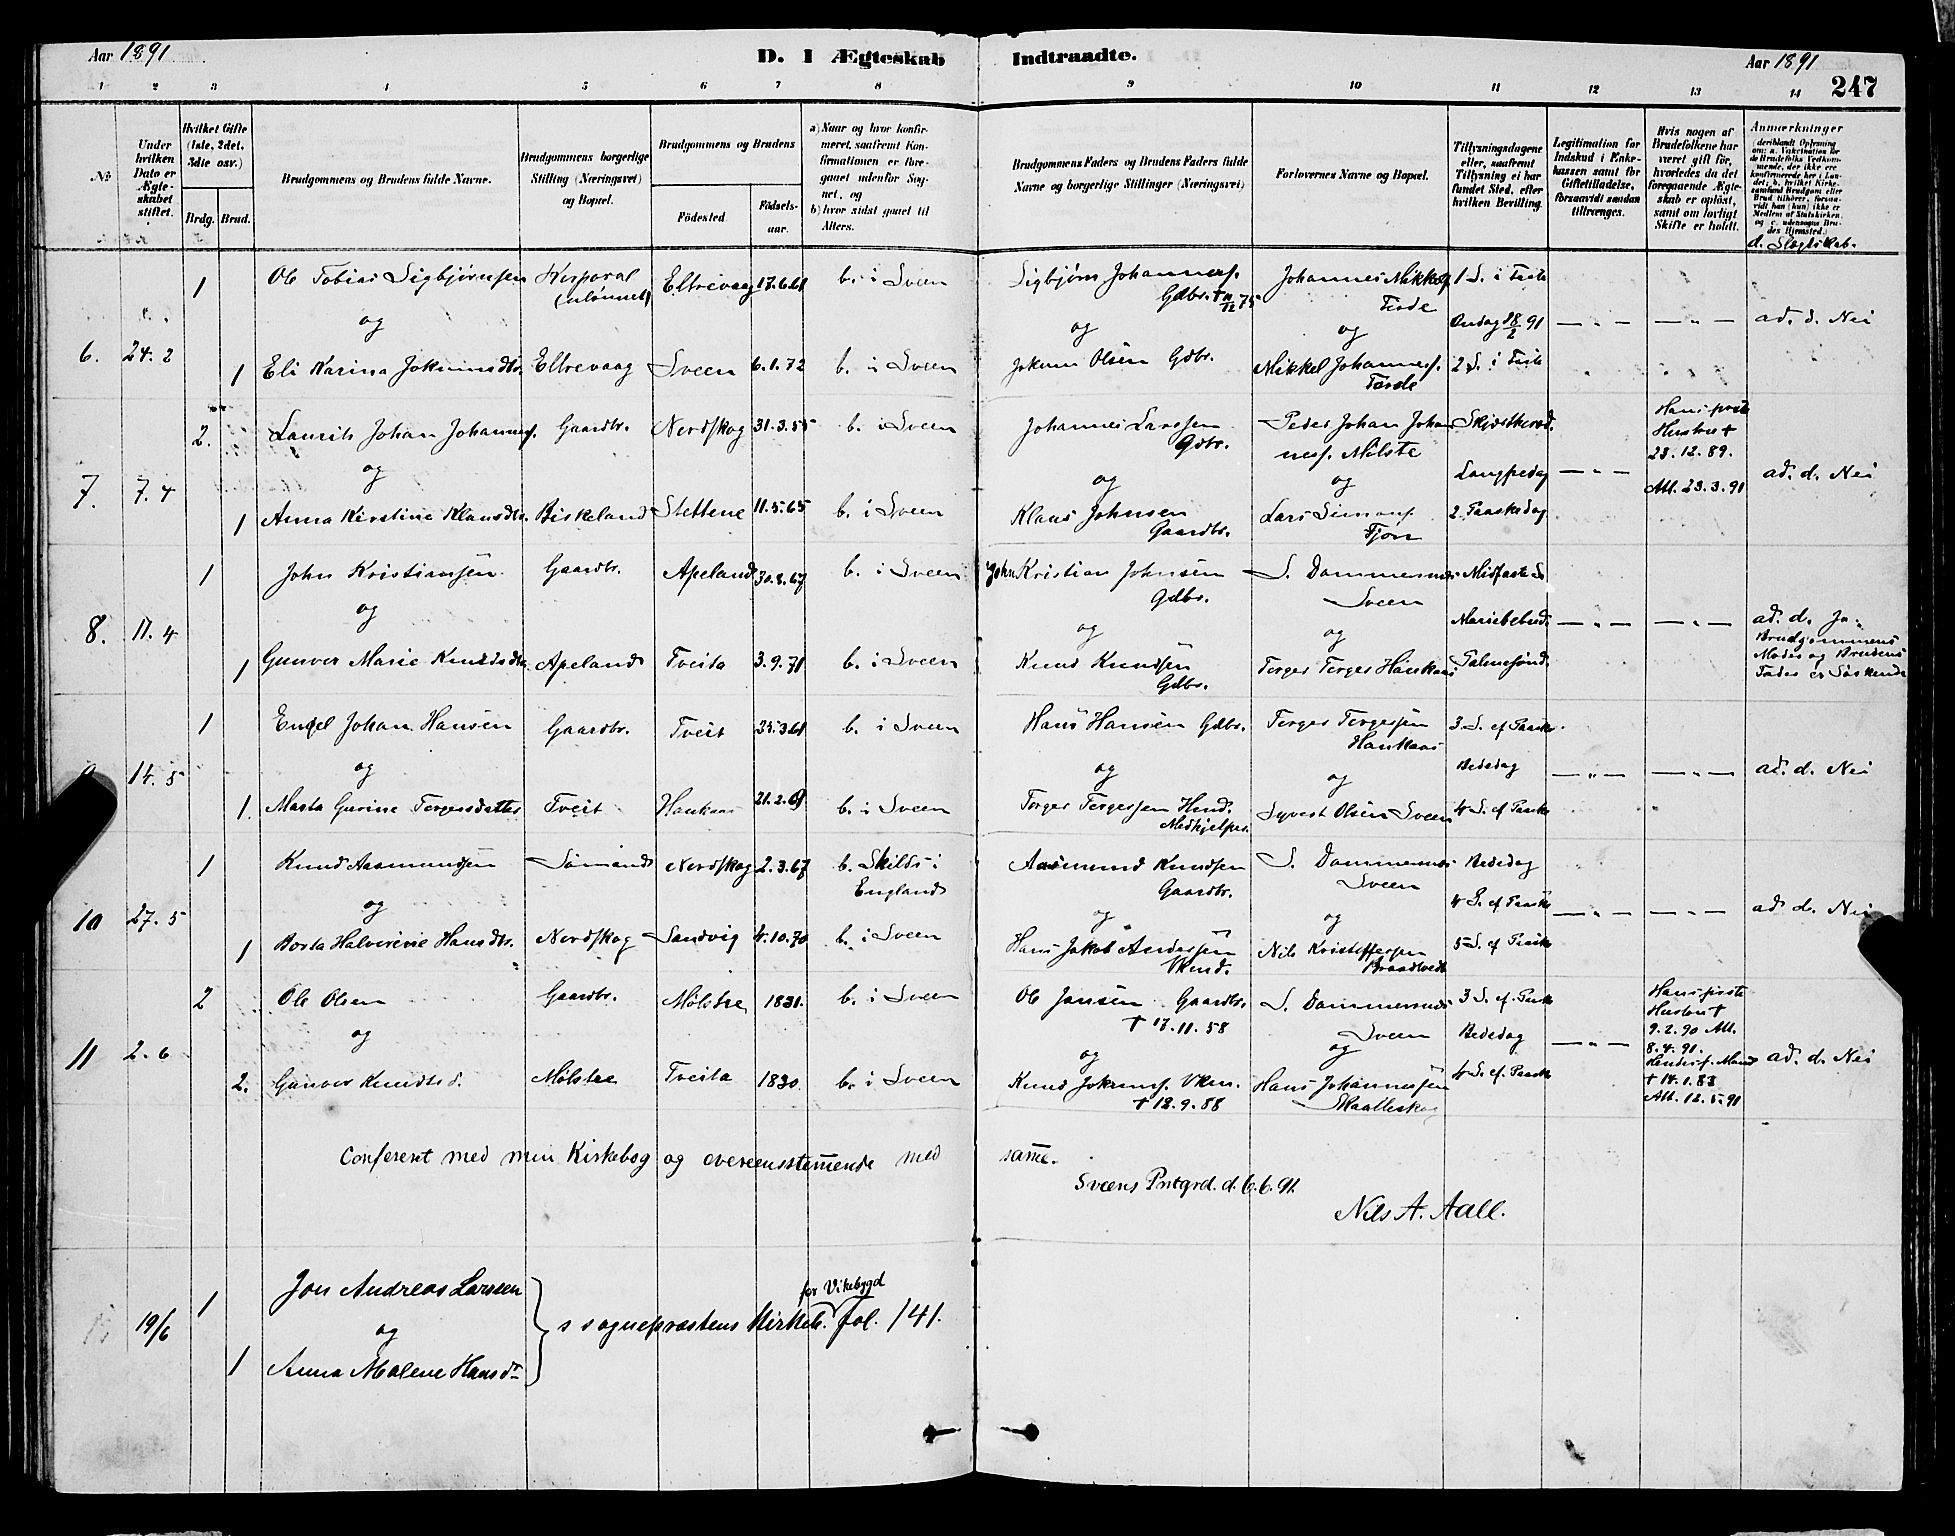 Aar 1891
D. I Ægteskab Indtraadte.
Aar 1891
247
1 2 3 4 5 6 7 8 9 10 11 12 13 14
No
Under hvilken Dato er Ægteskabet stiftet.
Hvilket Gifte (1ste, 2det, 3die osv.)
Brdg. Brud.
Brudgommens og Brudens fulde Navne.
Brudgommens borgerlige Stilling (Næringsvei) og Bopæl.
Brudgommens og Brudens
Fødested. Fødselsaar.
a) Naar og hvor konfirmeret, saafremt Konfirmationen er foregaaet udenfor Sognet, og
b) hvor sidst gaaet til Alters.
Brudgommens Faders og Brudens Faders fulde Navne og borgerlige Stillinger (Næringsvei)
Forlovernes Navne og Bopæl.
Tillysningsdagene eller, saafremt Tillysning ei har fundet Sted, efter hvilken Bevilling.
Legitimation for Indskud i Enkekassen samt for Giftetilladelse, forsaavidt saadan tiltrænges.
Hvis nogen af Brudefolkene har været gift før, hvorledes da det foregaaende Ægteskab er opløst, samt om lovligt Skifte er holdt.
Anmærkninger
d. Slægtskab.
6. 24. 2
1 Ole Tobias Sigbjørnsen Korporal (ulønnet) Eltrevaag 17.6.61 b. i Sveen Sigbjørn Johannesf. Gdbr. Johannes Mikkelsf. Førde 1 S. i Faste
og og og Onsdag 18/2 91 — " — — " — ad. d. Nei
1 Eli Karina Jokumsdtr. Eltrevaag Sveen 6.1.72 b. i Sveen Jokum Olsen Gdbr. Mikkel Johannesf. Førde 2 S. i Faste
7. 7. 4
2. Laurits Johan Johannesf. Gaardbr. Nordskog 31.3.55 b. i Sveen Johannes Larssen Gdbr. Peder Johan Johannesf. Mølste Skjærthorsd. Hans forste Hustru † 23.12.89.
og og og Langfredag — " — Att. 23.3.91 ad. d. Nei
1 Anna Kirstine Klausdtr. Birkeland Slettene 11.5.65 b. i Sveen Klaus Johnsen Gaardbr. Lars Simonsf. Fjon 2 Paaskedag
8. 17. 4
1 John Kristiansen Gaardbr. Apeland 30.8.67 b. i Sveen John Kristian Johnsen Gdbr. S. Dommersnes Sveen Midfaste S.
og og og Mariebebud. — " — — " — ad. d. Ja. Brudgommens Moder og Brudens Fader er Søskende
1 Gunvor Marie Knudsdtr. Apeland Tveita 3.9.71 b. i Sveen Knud Knudsen Gdbr. Torger Torgers Haukaas Palmesønd.
14. 5
1 Engel Johan Hansen Gaardbr. Tveit 25.3.61 b. i Sveen Hans Hansen Gdbr. Torger Torgersen Haukaas 3 S. ef. Paaske
og og og Bededag — " — — " — ad. d. Nei
1. Marta Gurine Torgersdatter Tveit Haukaas 21.2.69 b. i Sveen Torger Torgersen Hmd. Medhjelper. Syvert Olsen Sveen 4 S. ef Paaske
10 27. 5
1 Knud Aasmundsen Sømand Nordskog 2.3.67 b. Skilds i England Aasmund Knudsen Gaardbr. S. Dommersnes Sveen Bededag
og og og 4 S. ef Paaske — " — — " — ad. d. Nei
1 Borta Halverine Hansdtr. Nordskog Sandvig 4.10.70 b. i Sveen Hans Jakob Andersen Nils Kristoffersen Braadtvedt 5 S. ef Paaske
11 2. 6
2 Ole Olsen Gaardbr. Mølstre 1831. b. i Sveen Ole Jansen Gaardbr. † 17.11.58 S. Dommersnes Sveen 3 S. ef. Paask Hans forste Hustru † 9.2.90 Att. 8.4.91.
og og og Bededag — " — ad. d. Nei
2. Gunvor Knudtsd. Mølstre Tveita 1830. b. i Sveen Knud Jokumsf. † 12.9.88 Hans Johannessen Skaalleskog 4 S. ef. Paask Hendes f. Mand † 14.1.83 Att. 12.5.91
Conferert med min Kirkebog og overeensstemmende med samme.
Sveens Prstgrd. d. 6.6.91.
Nils A. Aall.
19/6
1 Jon Andreas Larssen
og
1 Anna Malene Hansdtr
s sognepræstens Kirkeb. for Vikebygd fol. 141.